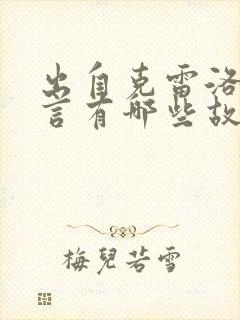 出自克雷洛
言有哪些故
梅兒若雪